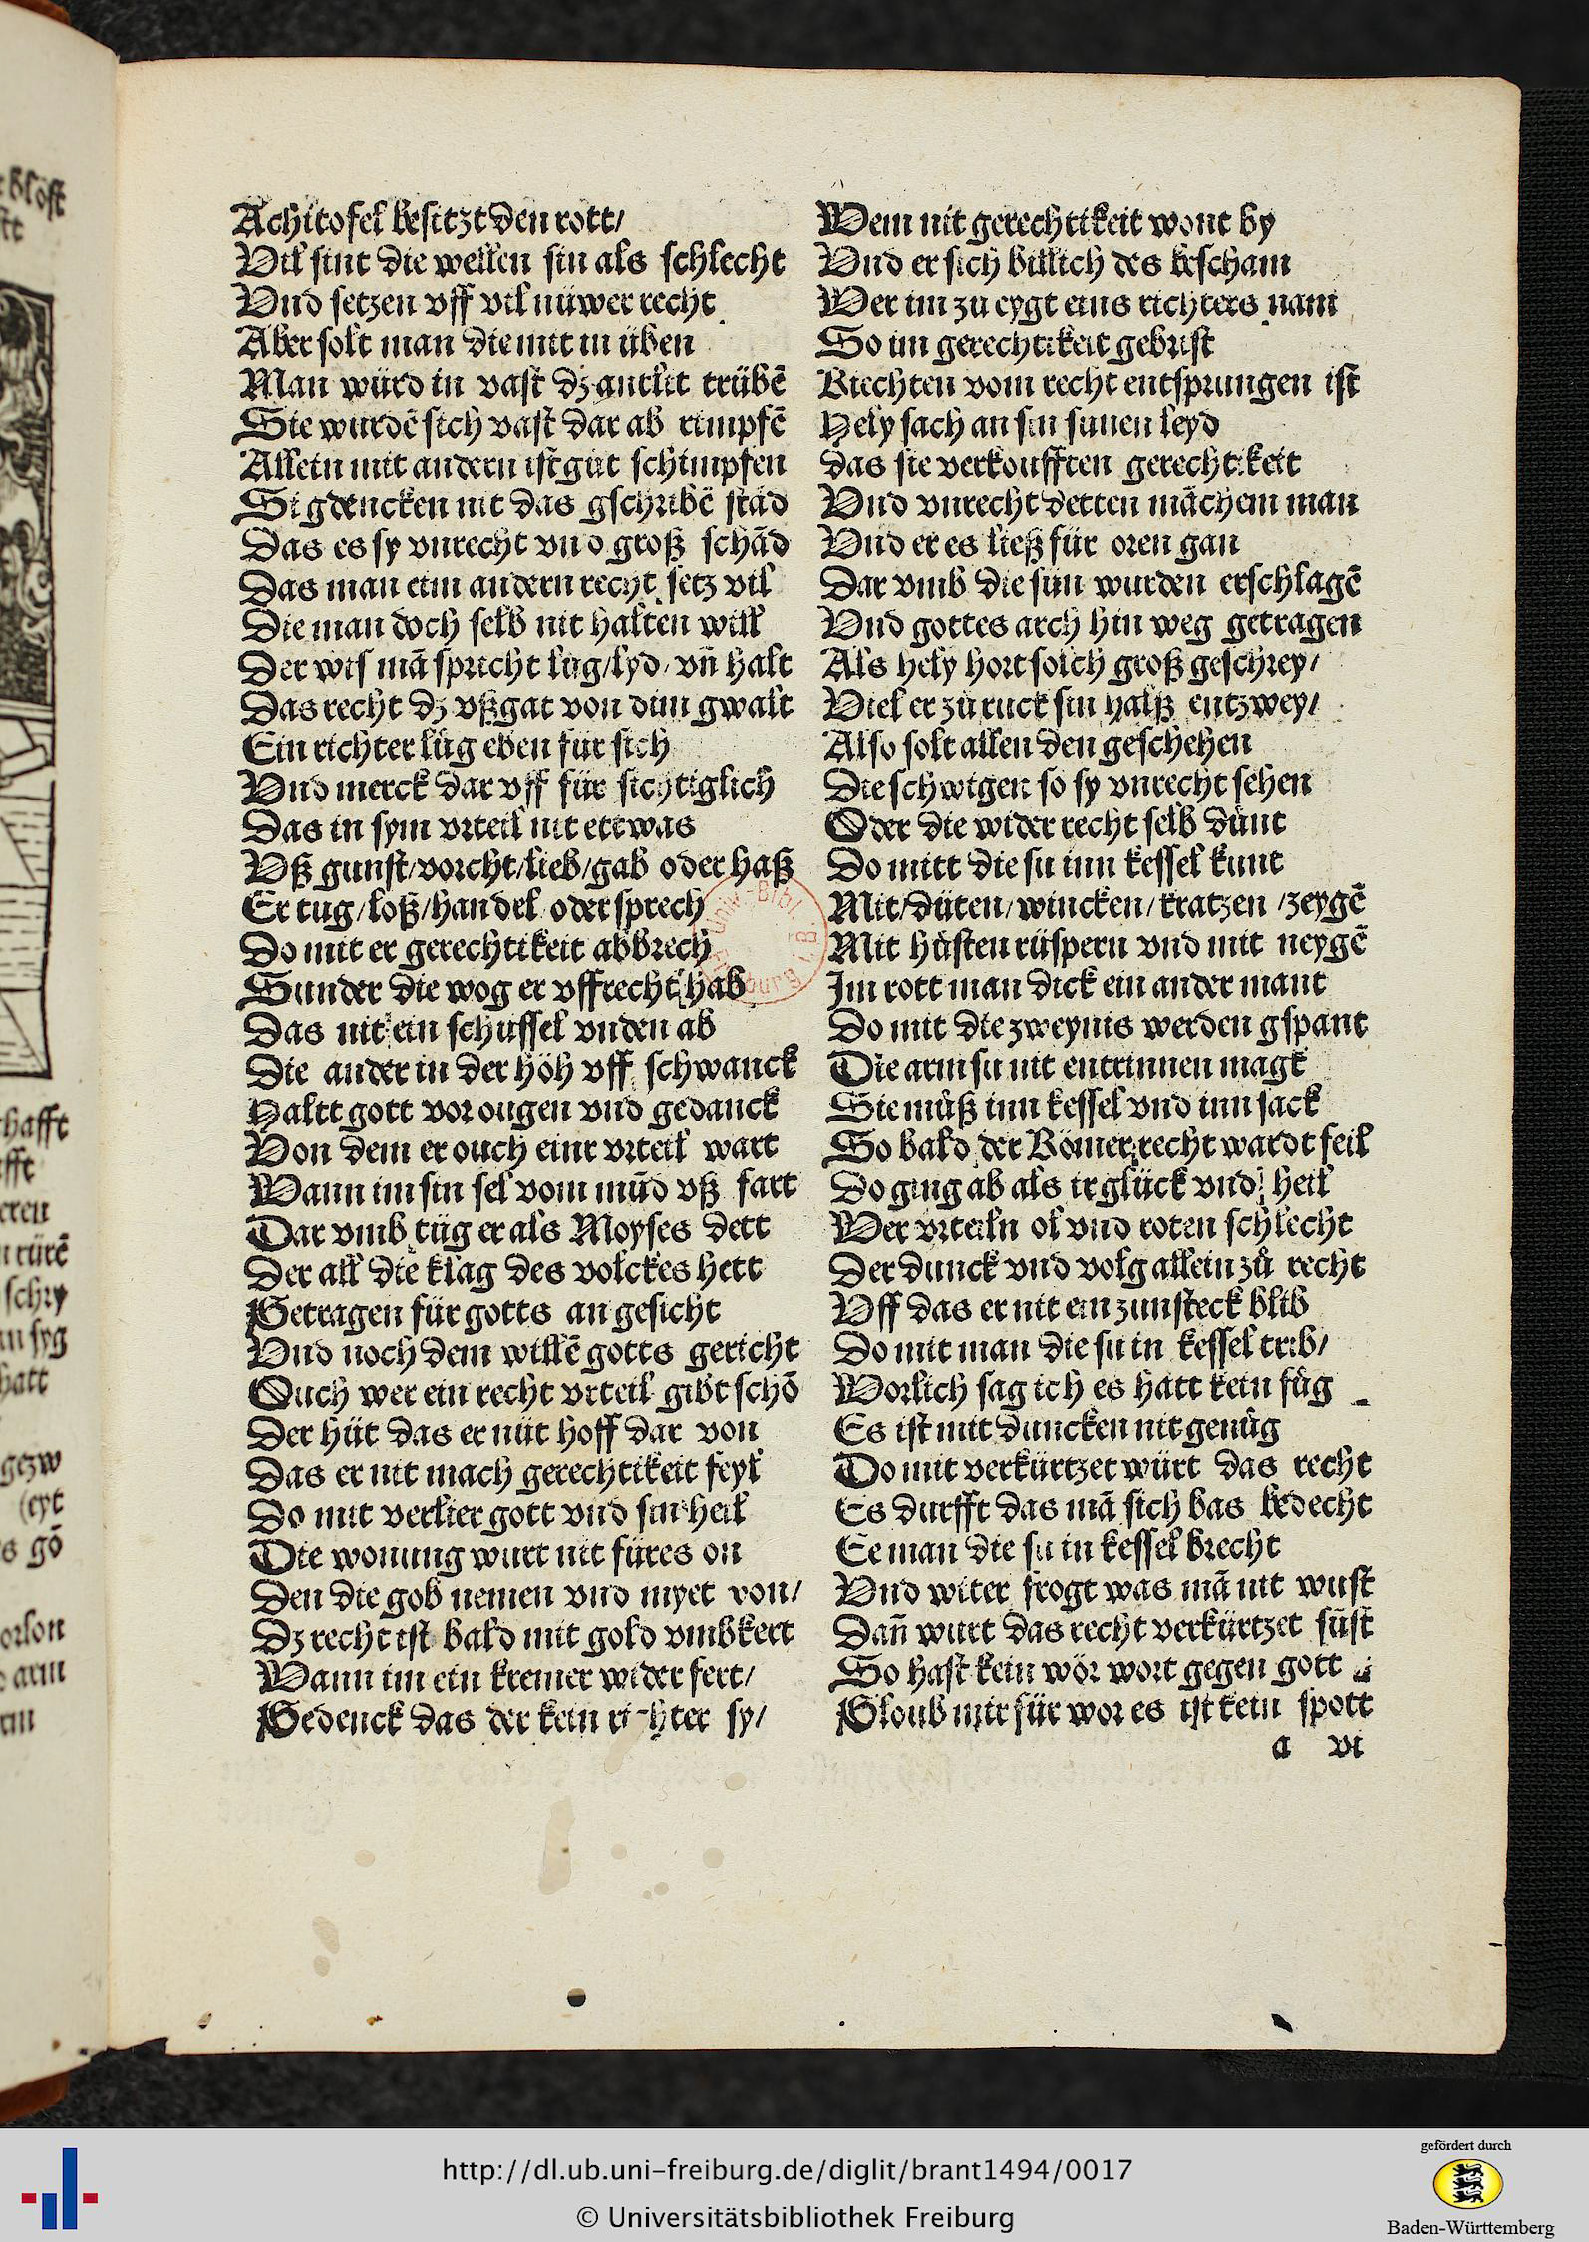 Achitofel besitzt den rott/
Vil sint die wellen sin als schlecht
Vnd setzen vff vil nüwer recht
Aber solt man die mit in üben
Man würd in vast dz antlit trübē
Sie wurdē sich vast dar ab rimpfē
Allein mit andern ist gůt schimpfen
Si gdencken nit das gschribē stād
Das es sy vnrecht vnd groß schād
Das man eim andern recht setz vil
Die man doch selb nit halten will
Der wis mā spricht lůg/lyd/vn̄ halt
Das recht dz vßgat von dim gwalt
Ein richter lůg eben für sich
Vnd merck dar vff für sichtiglich
Das in sym vrteil nit ettwas
Vß gunst/vorcht/lieb/gab oder haß
Er tug/loß/handel/oder sprech
Do mit er gerechtikeit abbrech
Sunder die wog er vffrecht hab
Das nit ein schüssel vnden ab
Die ander in der höh vff schwanck
Haltt gott vor ougen vnd gedanck
Von dem er ouch einr vrteil wart
Wann im sin sel vom mūd vß fart
Dar vmb tüg er als Moyses dett
Der all die klag des volckes hett
Getragen für gotts an gesicht
Vnd noch dem willē gotts gericht
Ouch wer ein recht vrteil gibt schō
Der hüt das er nüt hoff dar von
Das er nit mach gerechtikeit feyl
Do mit verlier gott vnd sin heil
Die wonung wurt nit füres on
Den die gob nemen vnd myet von/
Dz recht ist bald mit gold vmbkert
Wann im ein kremer wider fert/
Gedenck das der kein richter sy/
Wem nit gerechtikeit wont by
Vnd er sich billich des bescham
Wer im zu eygt eins richters nam
So im gerechtikeit gebrist
Riechten vom recht entsprungen ist
Hely sach an sin sünen leyd
das sie verkoufften gerechtikeit
Vnd vnrecht detten māchem man
Vnd er es ließ für oren gan
Dar vmb die sün wurden erschlagē
Vnd gottes arch hin weg getragen
Als hely hort solch groß geschrey/
Viel er zů ruck sin halß entzwey/
Also solt allen den geschehen
Die schwigen so sy vnrecht sehen
Oder die wider recht selb dünt
Do mitt die su inn kessel kunt
Mit/düten/wincken/kratzen/zeygē
Mit hůsten rüspern vnd mit neygē
Im rott man dick ein ander mant
Do mit die zweynis werden gspant
Die arm su nit entrinnen magk
Sie můß inn kessel vnd inn sack
So bald der Römer recht wardt feil
Do ging ab als ir glück vnd heil
Wer vrteiln ol vnd roten schlecht
Der dunck vnd volg allein zů recht
Vff das er nit ein zunsteck blib
Do mit man die su in kessel trib/
Worlich sag ich es hatt kein fůg
Es ist mit duncken nit genůg
Do mit verkürtzet würt das recht
Es durfft das mā sich bas bedecht
Ee man die su in kessel brecht
Vnd witer frogt was mā nit wust
Dan̄ wurt das recht verkürtzet süst
So hast kein wör wort gegen gott
Gloub mir für wor es ist kein spott
a vi
http://dl.ub.uni-freiburg.de/diglit/brant1494/0017
© Universitätsbibliothek Freiburg
gefördert durch
Baden-Württemberg